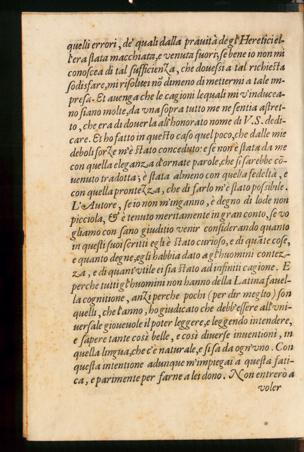 quelli errori, de' quali dalla prauità de gl'Heretici el-
l'era stata macchiata, e venuta fuori, se bene io non mi
conoscea di tal sufficienza, che douessi a tal richiesta
sodisfare, mi risoluei nõ dimeno di mettermi a tale im-
presa. Et auenga che le cagioni le quali mi v'inducea-
no siano molte, da vna sopra tutto me ne sentia astret-
to, che era di douerla all'honorato nome di V.S. dedi-
care. Et ho fatto in questo caso quel poco, che dalle mie
deboli forze m'è stato conceduto: e se non è stata da me
con quella eleganza d'ornate parole, che si sarebbe cõ-
uenuto tradotta; è stata almeno con quella fedeltà, e
con quella prontezza, che di farlo m'è stato possibile.
L'Autore, se io non m'inganno, è degno di lode non
picciola, & è tenuto meritamente in gran conto, se vo
gliamo con sano giuditio venir considerando quanto
in questi suoi scritti egli è stato curioso, e di quãte cose,
e quanto degne, egli habbia dato a gl'huomini contez-
za, e di quant'vtile ei sia stato ad infiniti cagione. E
perche tutti gl'huomini non hanno della Latina fauel-
la cognitione, anzi perche pochi (per dir meglio) son
quelli, che l'anno, ho giudicato che debb'essere all'vni-
uersale gioueuole il poter leggere, e leggendo intendere,
e sapere tante così belle, e così diuerse inuentioni, in
quella lingua, che c'è naturale, e si sa da ogn'vno. Con
questa intentione adunque m'impiegai a questa fati-
ca, e parimente per farne a lei dono. Non entrerò a
voler